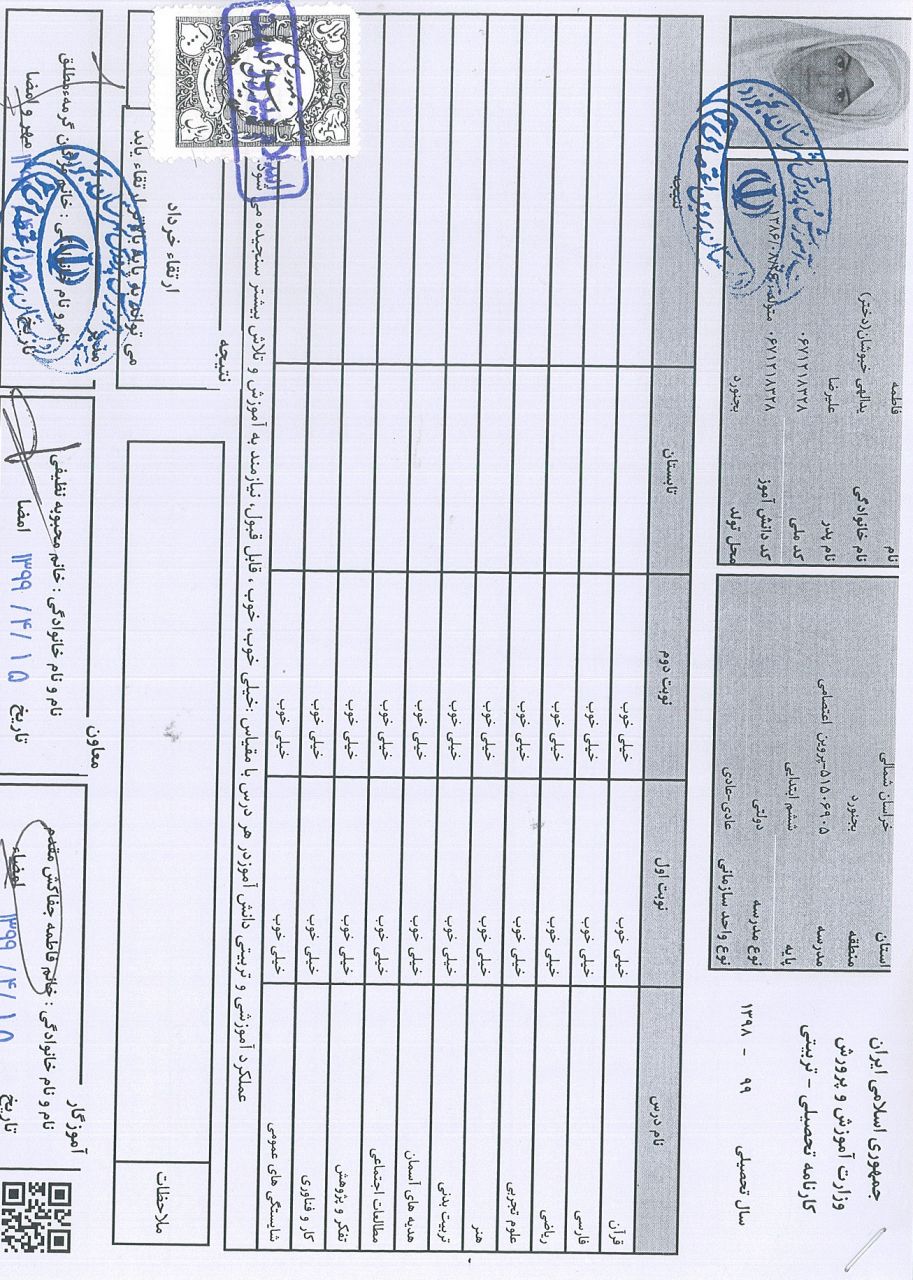 جمهوری اسلامی ایران
وزارت آموزش و پرورش
کارنامه تحصیلی - تربیتی
سال تحصیلی ۹۹ - ۱۳۹۸
استان خراسان شمالی
منطقه بجنورد
مدرسه ۵۱۵۰۶۹۰۵-پروین اعتصامی
پایه ششم ابتدایی
نوع مدرسه دولتی
نوع واحد سازمانی عادی-عادی
نام فاطمه
نام خانوادگی یدالهی خبوشان(دختر)
نام پدر علیرضا
کد ملی ۰۶۷۱۲۱۸۳۲۸
کد دانش آموز ۰۶۷۱۲۱۸۳۲۸ متولد
محل تولد بجنورد
نام درس نوبت اول نوبت دوم تابستان نتیجه
قرآن خیلی خوب خیلی خوب
فارسی خیلی خوب خیلی خوب
ریاضی خیلی خوب خیلی خوب
علوم تجربی خیلی خوب خیلی خوب
هنر خیلی خوب خیلی خوب
تربیت بدنی خیلی خوب خیلی خوب
هدیه های آسمان خیلی خوب خیلی خوب
مطالعات اجتماعی خیلی خوب خیلی خوب
تفکر و پژوهش خیلی خوب خیلی خوب
کار و فناوری خیلی خوب خیلی خوب
شایستگی های عمومی خیلی خوب خیلی خوب
عملکرد آموزشی و تربیتی دانش آموزدر هر درس با مقیاس :خیلی خوب، خوب ، قابل قبول، نیازمند به آموزش و تلاش بیشتر سنجیده می شود
ملاحظات
نتیجه
ارتقاء خرداد
می تواند به پایه بالاتر ارتقاء یابد
آموزگار
نام و نام خانوادگی : خانم فاطمه جفاکش مقدم
تاریخ ۱۳۹۹ /۴/ ۱۵ امضاء
معاون
نام و نام خانوادگی : خانم محبوبه نظیفی
تاریخ ۱۳۹۹ /۴/ ۱۵ امضا
مدیر
نام و نام خانوادگی : خانم مژگان گرمه مطلق
تاریخ مهر و امضا